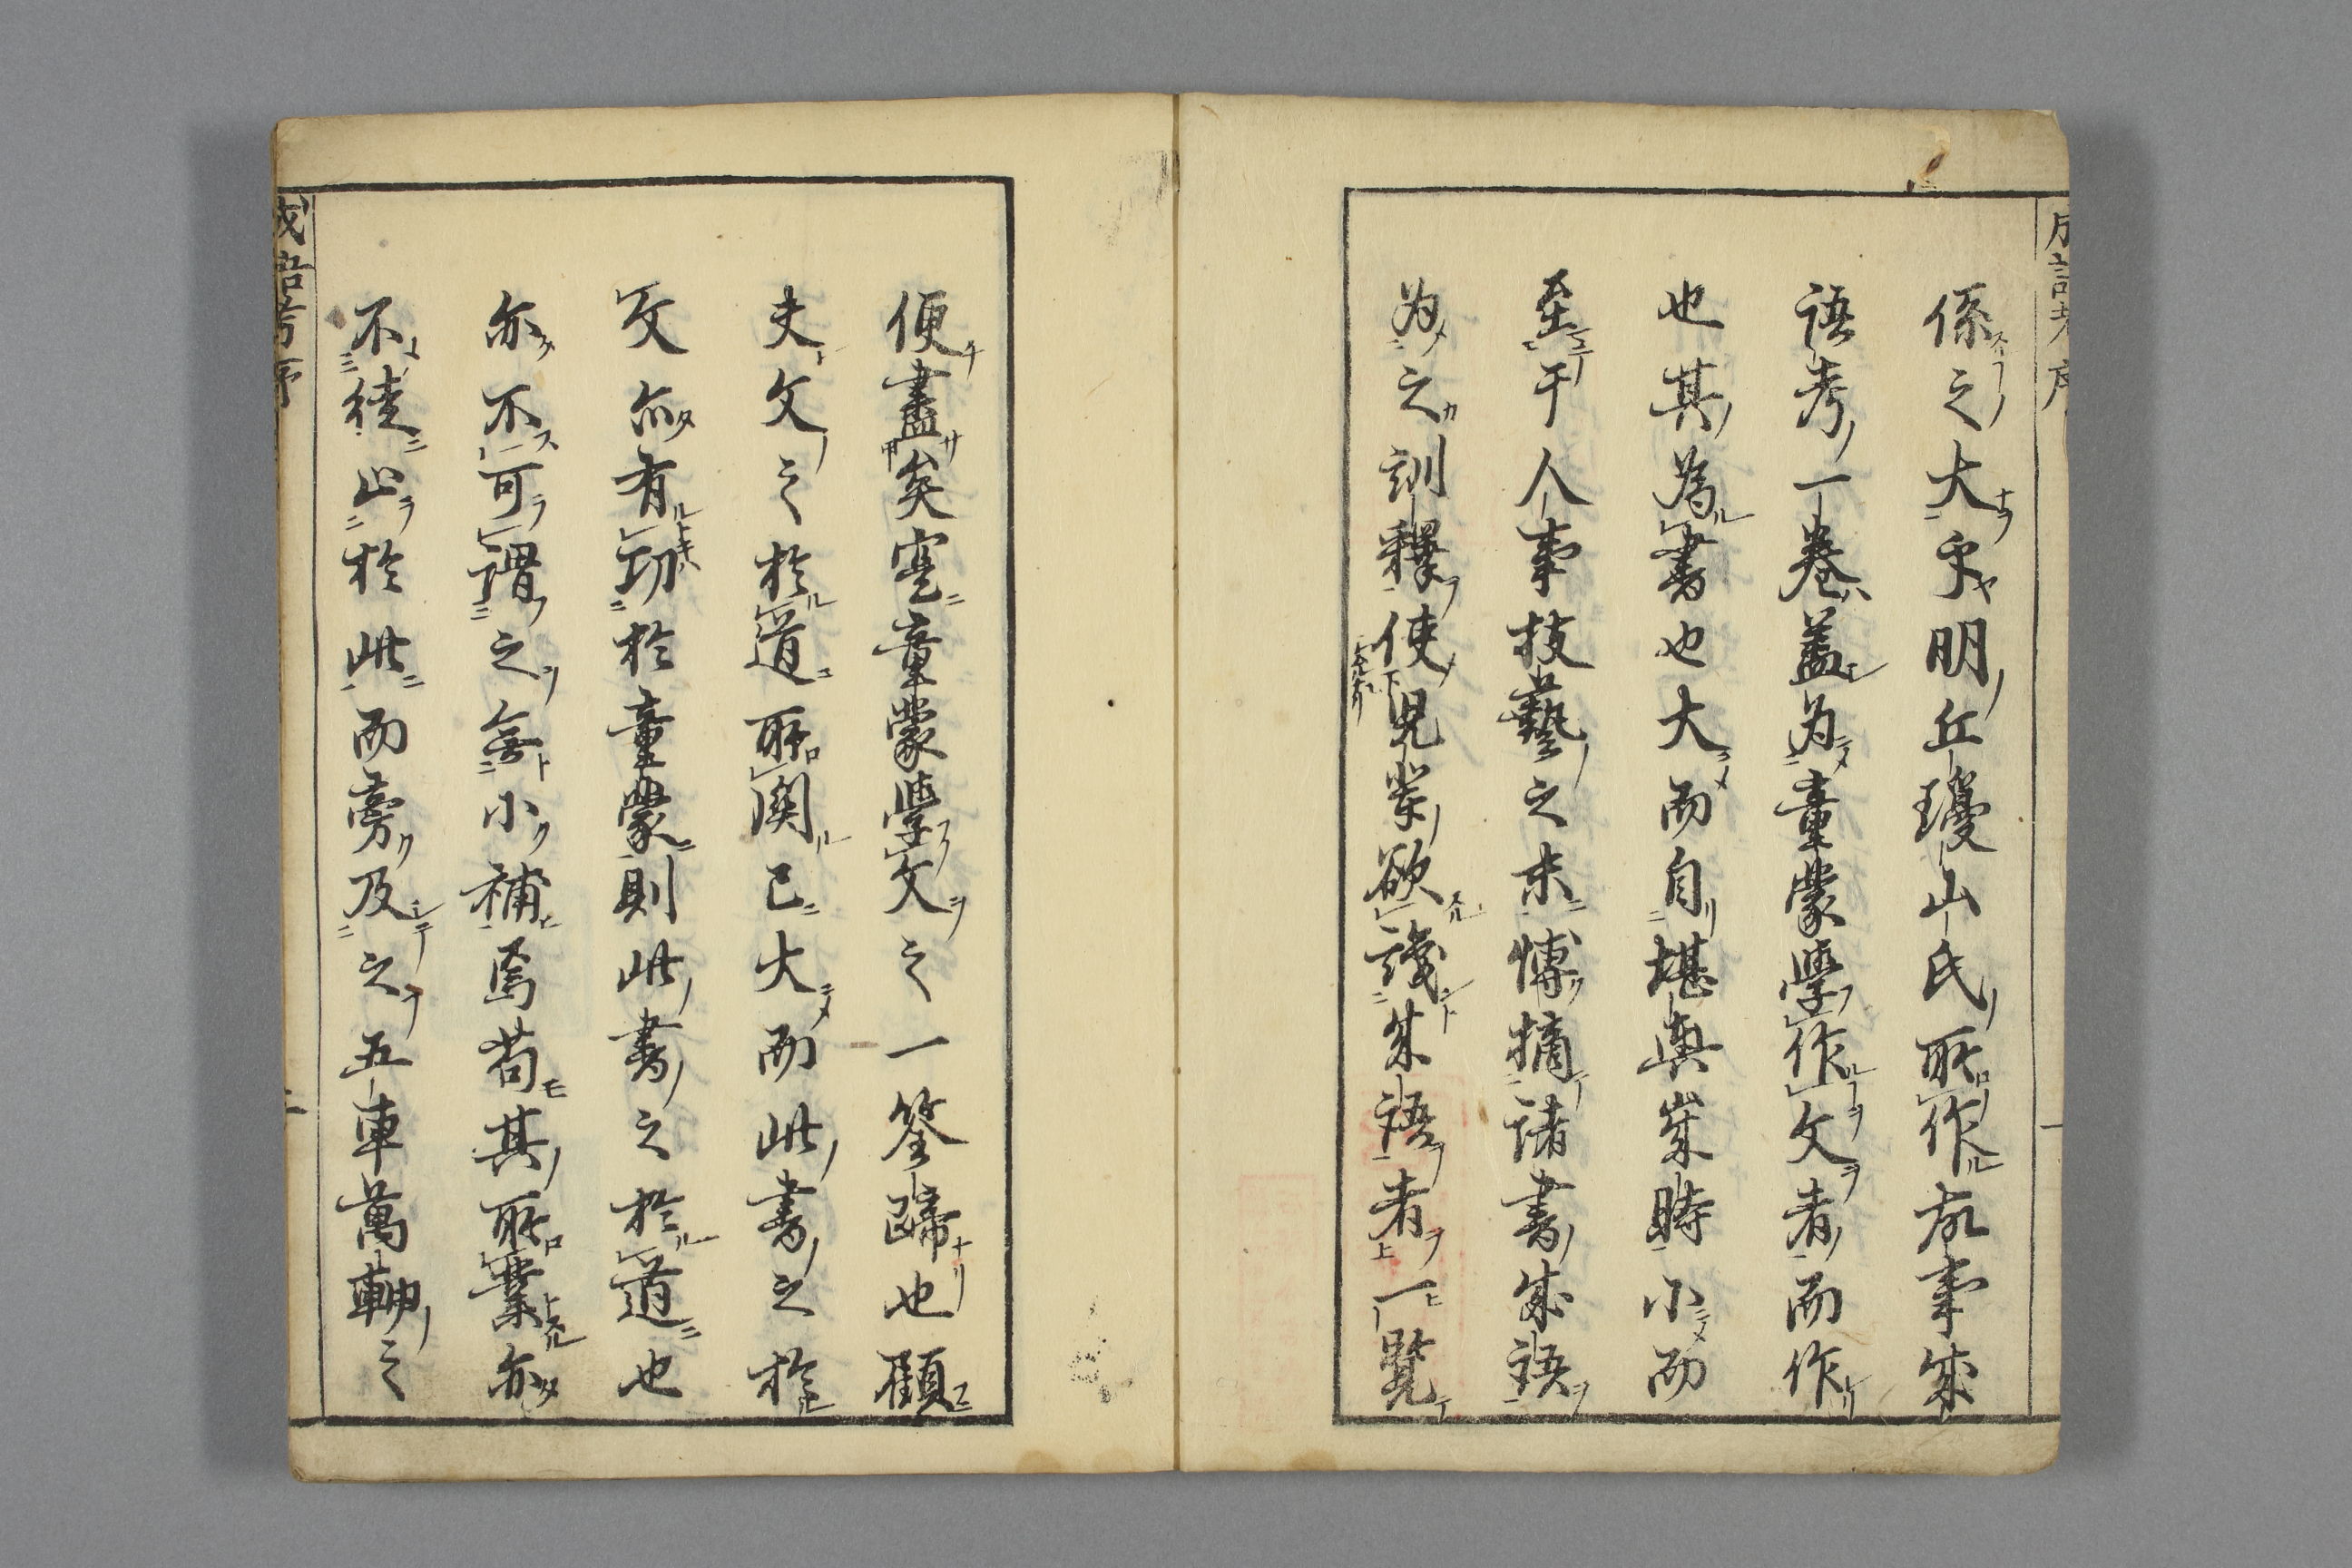 成語考序 一
係之大乎明丘瓊山氏所作故事成
語考一卷蓋为童蒙學作文者而作
也其為書也大而自堪輿歲時小而
至于人事技藝之末博摘諸書成語
为之訓釋使児輩欲識成語者一覽
便盡矣寔童蒙學文之一筌蹄也顧
夫文之於道所関已大而此書之於
文亦有功於童蒙則此書之於道也
亦不可謂之無小補焉苟其所業亦
不徒止於此而旁及之五車萬軸之
成語考序 二